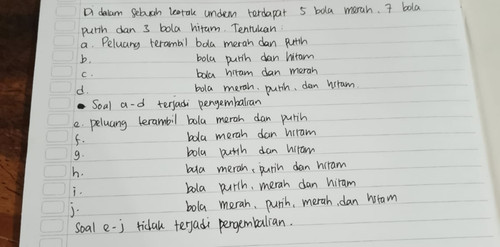 Di dalam sebuah kotak undem terdapat 5 bola merah. 7 bola
putih dan 3 bola hitam. Tentukan:
a. Peluang terambil bola merah dan putih
b. bola putih dan hitam
c. bola hitam dan merah
d. bola merah, putih, dan hitam
• Soal a-d terjadi pengembalian
e. peluang terambil bola merah dan putih
f. bola merah dan hitam
g. bola putih dan hitam
h. bola merah, putih dan hitam
i. bola putih, merah dan hitam
j. bola merah, putih, merah, dan hitam
Soal e-j tidak terjadi pengembalian.